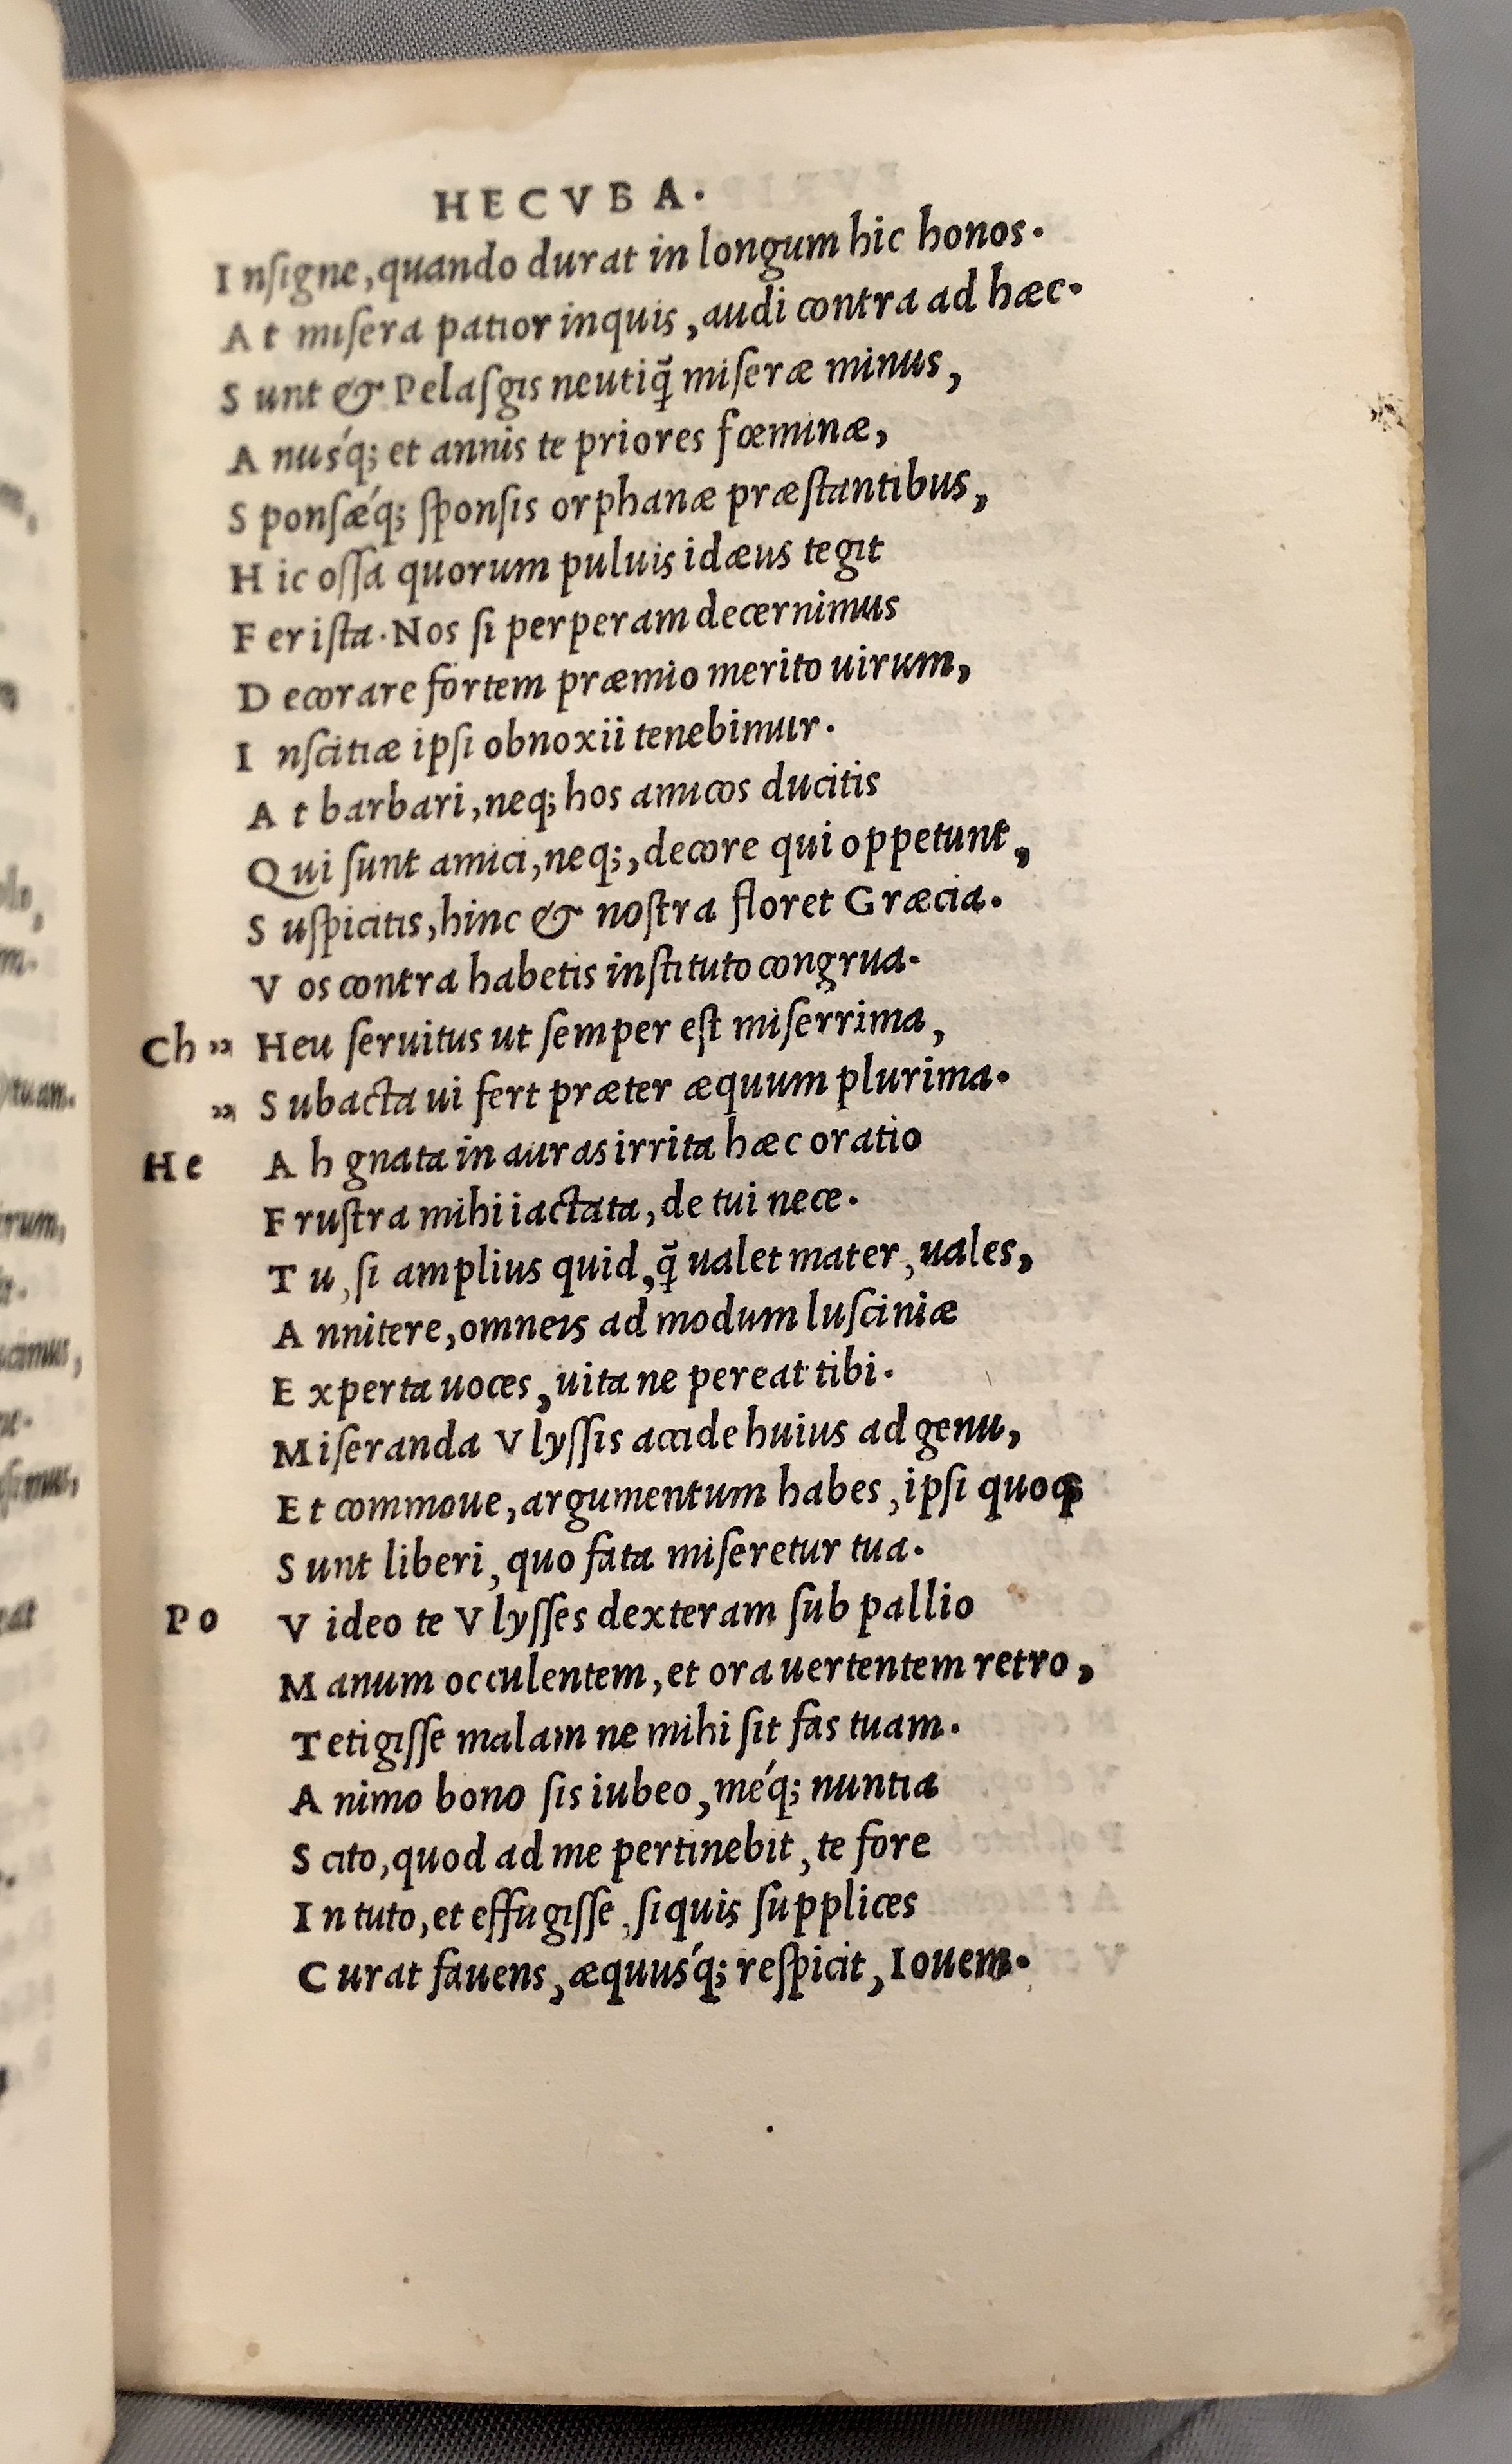 HECVBA.
Inſigne, quando durat in longum hic honos.
At miſera patior inquis, audi contra ad hæc.
Sunt & Pelaſgis neutiq̃ miſeræ minus,
Anuśq; et annis te priores fœminæ,
Sponſǽq; ſponſis orphanæ præſtantibus,
Hic oſſa quorum puluis idæus tegit
Fer iſta. Nos ſi perperam decernimus
Decorare fortem præmio merito uirum,
Inſcitiæ ipſi obnoxii tenebimur.
At barbari, neq; hos amicos ducitis
Qui ſunt amici, neq;, decore qui oppetunt,
Suſpicitis, hinc & noſtra floret Græcia.
Vos contra habetis inſtituto congrua.
Ch » Heu ſeruitus ut ſemper eſt miſerrima,
» Subacta ui fert præter æquum plurima.
He Ah gnata in auras irrita hæc oratio
Fruſtra mihi iactata, de tui nece.
Tu, ſi amplius quid, q̃ ualet mater, uales,
Annitere, omneis ad modum luſciniæ
Experta uoces, uita ne pereat tibi.
Miſeranda Vlyſſis accide huius ad genu,
Et commoue, argumentum habes, ipſi quoqꝫ
Sunt liberi, quo fata miſeretur tua.
Po Video te Vlyſſes dexteram ſub pallio
Manum occulentem, et ora uertentem retro,
Tetigiſſe malam ne mihi ſit fas tuam.
Animo bono ſis iubeo, méq; nuntia
Scito, quod ad me pertinebit, te fore
In tuto, et effugiſſe, ſiquis ſupplices
Curat fauens, æquuśq; reſpicit, Iouem.